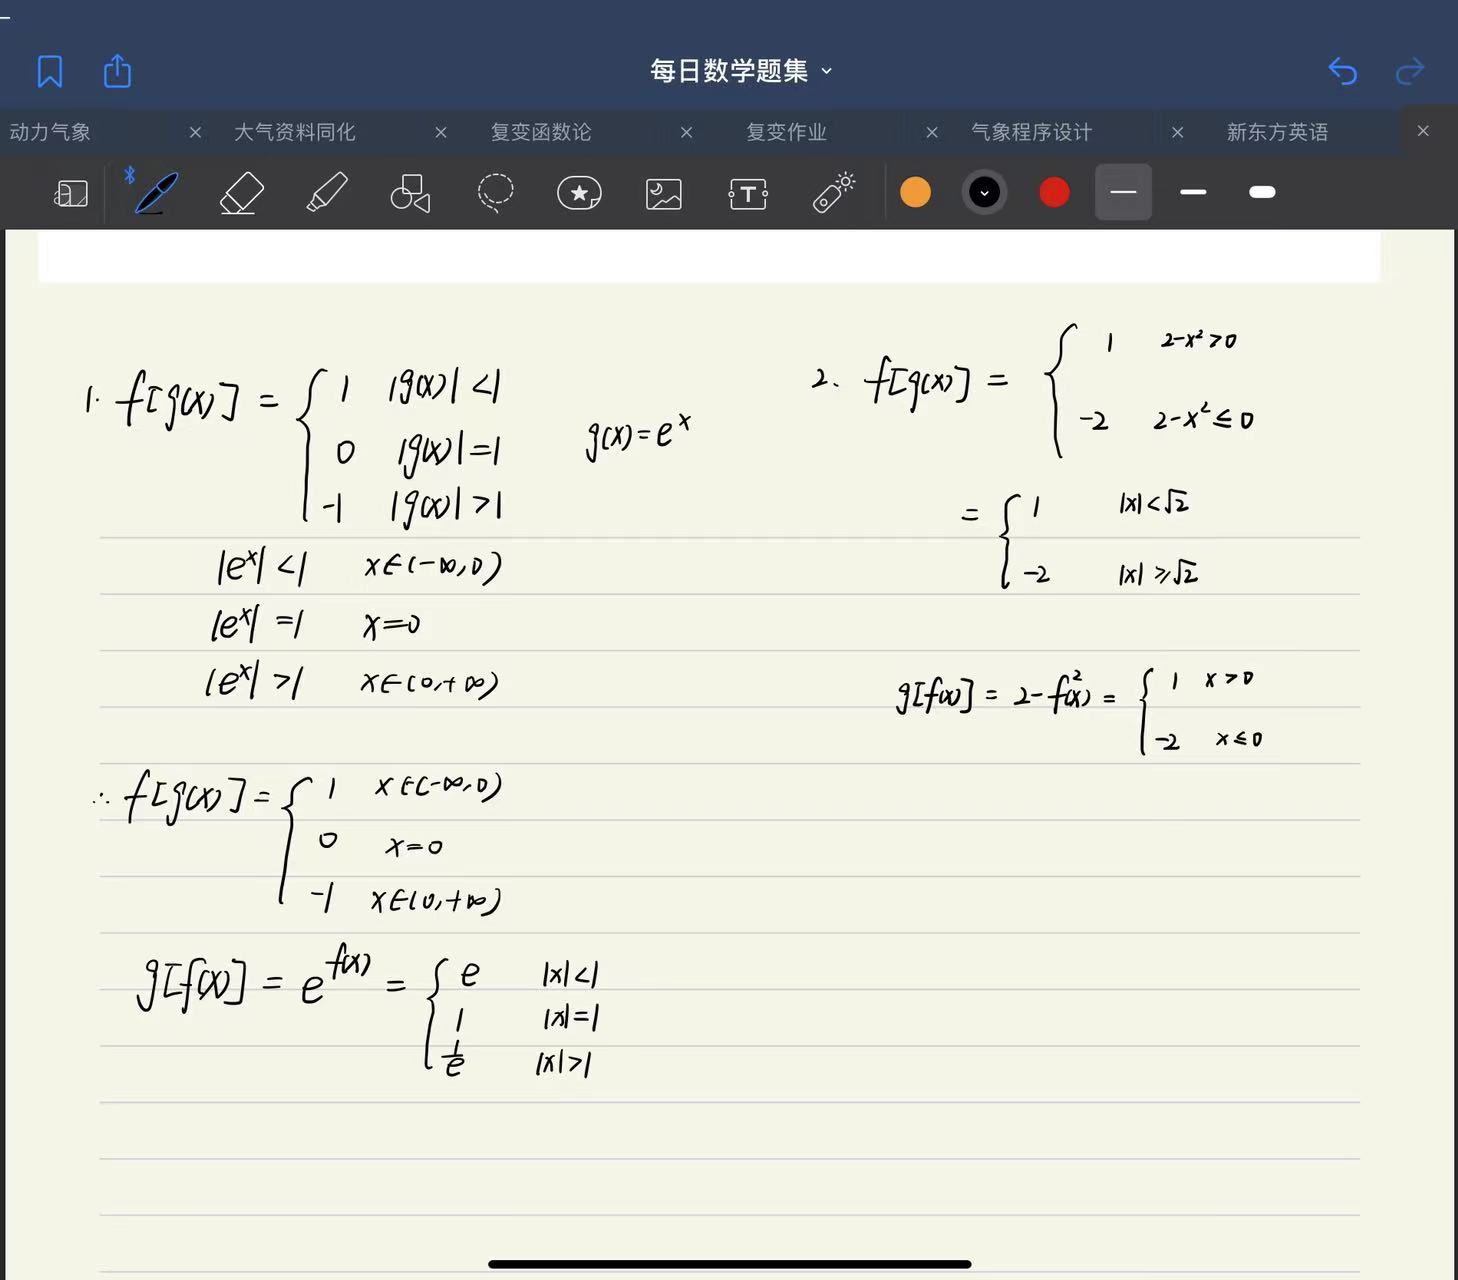 每日数学题集
动力气象 大气资料同化 复变函数论 复变作业 气象程序设计 新东方英语
1. f[g(x)] = { 1 |g(x)|<1
0 |g(x)|=1
-1 |g(x)|>1
g(x)=e^x
|e^x|<1 x∈(-∞,0)
|e^x|=1 x=0
|e^x|>1 x∈(0,+∞)
∴ f[g(x)] = { 1 x∈(-∞,0)
0 x=0
-1 x∈(0,+∞)
g[f(x)] = e^{f(x)} = { e |x|<1
1 |x|=1
1/e |x|>1
2. f[g(x)] = { 1 2-x²>0
-2 2-x²≤0
= { 1 |x|<√2
-2 |x|≥√2
g[f(x)] = 2-f²(x) = { 1 x>0
-2 x≤0